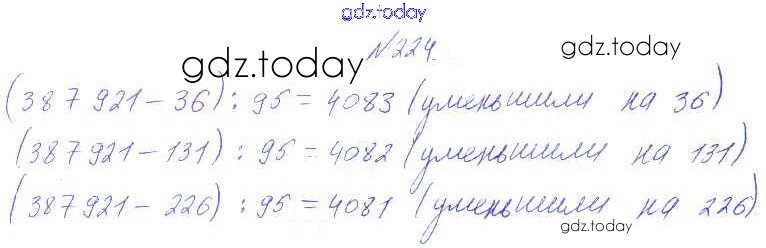 gdz.today
№224.
gdz.today gdz.today
(387 921 - 36) : 95 = 4083 (уменьшили на 36)
(387 921 - 131) : 95 = 4082 (уменьшили на 131)
(387 921 - 226) : 95 = 4081 (уменьшили на 226)
gdz.today